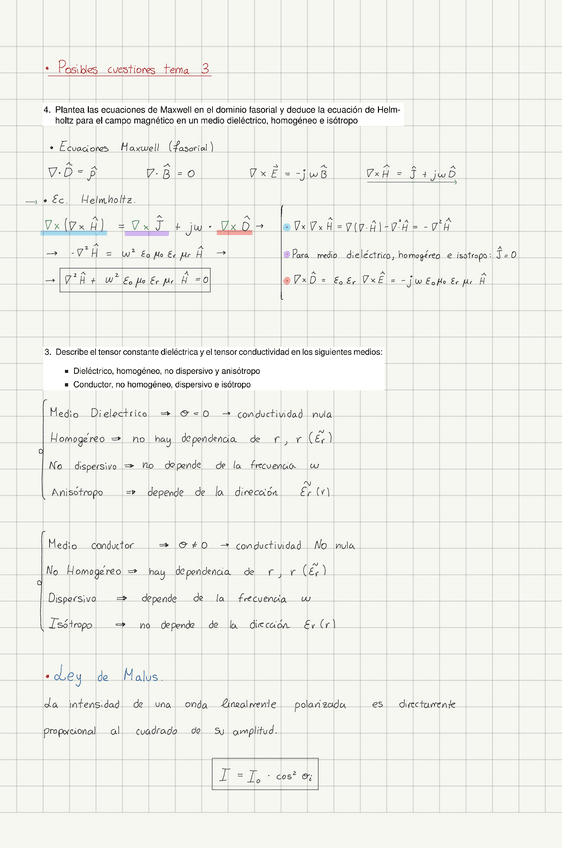 • Posibles cuestiones tema 3
4. Plantea las ecuaciones de Maxwell en el dominio fasorial y deduce la ecuación de Helm-
holtz para el campo magnético en un medio dieléctrico, homogéneo e isótropo
• Ecuaciones Maxwell (fasorial)
∇· D̂ = ρ̂   ∇· B̂ = 0   ∇ × E⃗ = -jωB̂   ∇×Ĥ = Ĵ + jωD̂
→ • Ec. Helmholtz.
∇×(∇×Ĥ) = ∇×Ĵ + jω · ∇×D̂ →
→ -∇²Ĥ = ω² ε₀ μ₀ εr μr Ĥ →
→ ∇²Ĥ + ω² ε₀ μ₀ εr μr Ĥ = 0
∇×∇×Ĥ = ∇(∇·Ĥ) - ∇²Ĥ = -∇²Ĥ
Para medio dieléctrico, homogéreo e isotropo: Ĵ = 0
∇×D̂ = ε₀ εr ∇×Ê = -jω ε₀ μ₀ εr μr Ĥ
3. Describe el tensor constante dieléctrica y el tensor conductividad en los siguientes medios:
▪ Dieléctrico, homogéneo, no dispersivo y anisótropo
▪ Conductor, no homogéneo, dispersivo e isótropo
Medio Dielectrico ⇒ σ = 0 → conductividad nula
Homogéreo ⇒ no hay dependencia de r, r (ε̃r)
No dispersivo ⇒ no depende de la frecuencia ω
Anisótropo ⇒ depende de la dirección ε̃r (r)
Medio conductor ⇒ σ ≠ 0 → conductividad No nula
No Homogéneo ⇒ hay dependencia de r, r (ε̃r)
Dispersivo ⇒ depende de la frecuencia ω
Isótropo ⇒ no depende de la dirección εr (r)
• Ley de Malus.
La intensidad de una onda linealmente polarizada es directamente
proporcional al cuadrado de su amplitud.
I = I₀ · cos² σi